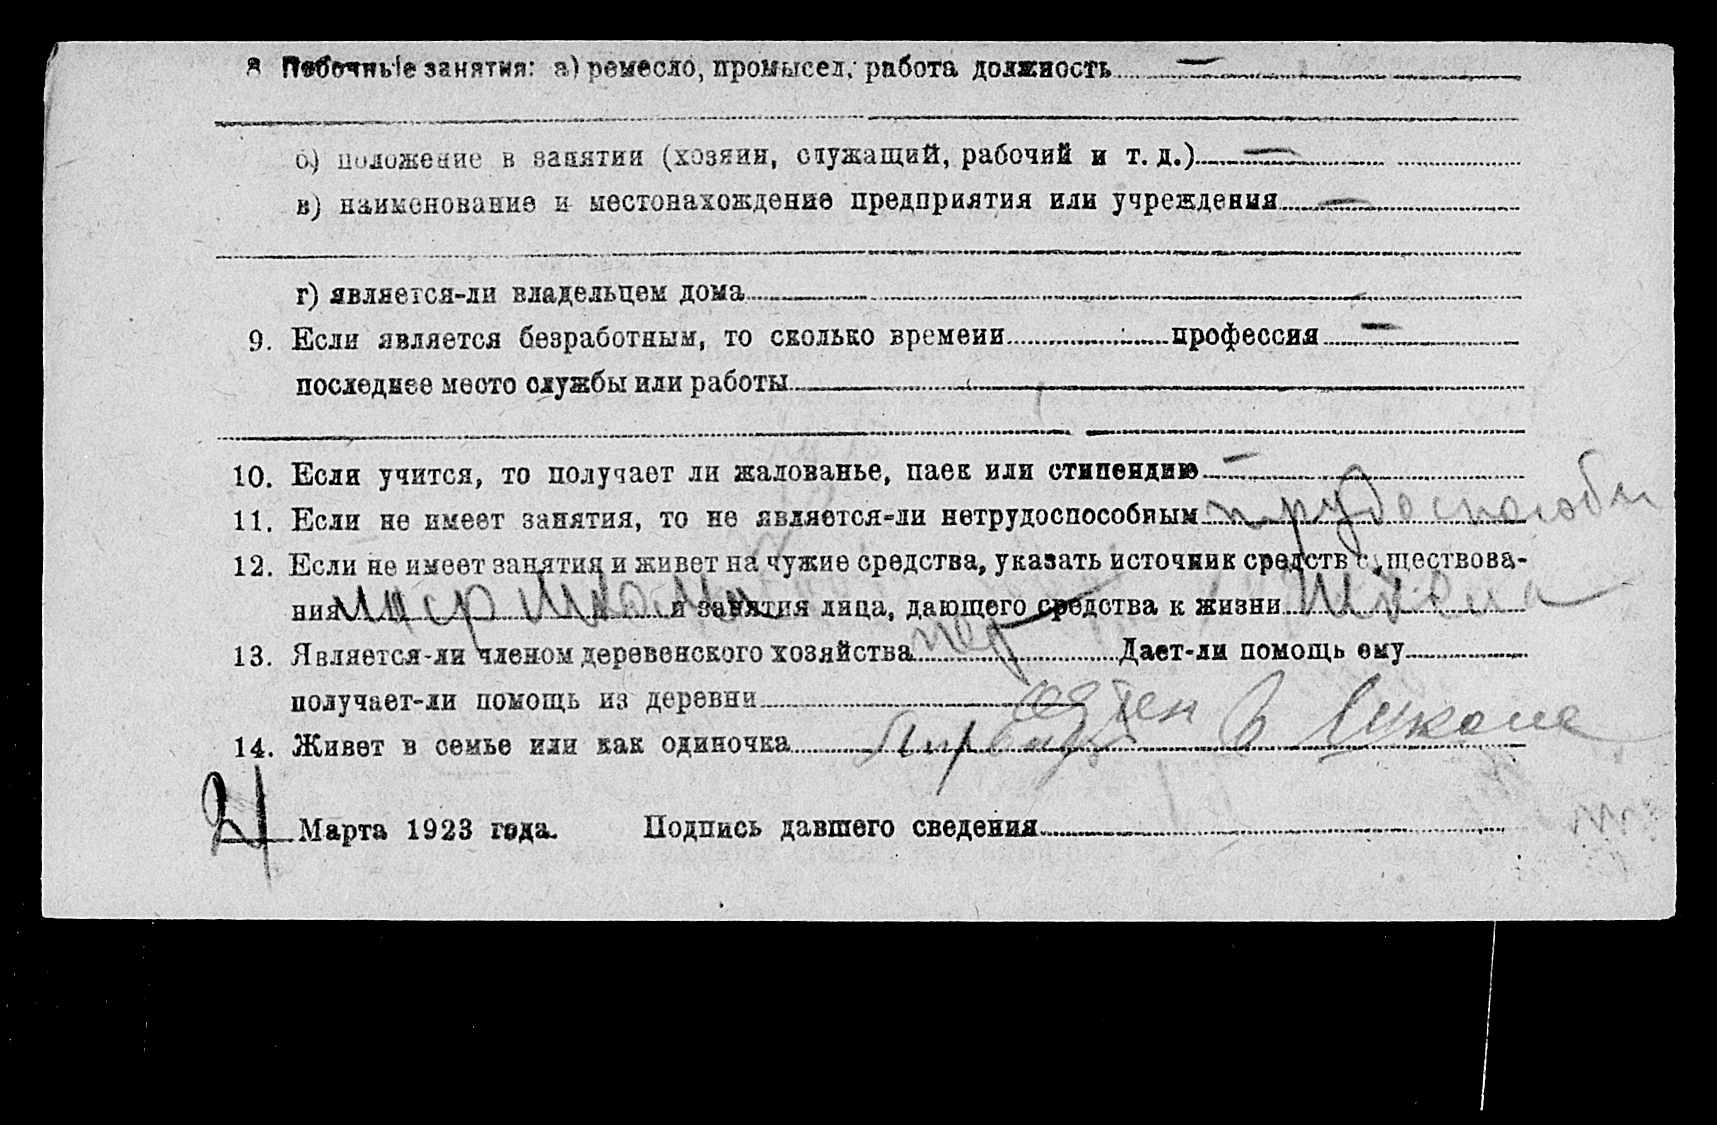 8 Побочные занятия: а) ремесло, промысел, работа должность —
б) положение в занятии (хозяин, служащий, рабочий и т. д.) —
в) наименование и местонахождение предприятия или учреждения —
г) является-ли владельцем дома
9. Если является безработным, то сколько времени профессия —
последнее место службы или работы
10. Если учится, то получает ли жалованье, паек или стипендию —
11. Если не имеет занятия, то не является-ли нетрудоспособным трудоспособн
12. Если не имеет занятия и живет на чужие средства, указать источник средств существова-
ния и занятия лица, дающего средства к жизни
13. Является-ли членом деревенского хозяйства нет Дает-ли помощь ему
получает-ли помощь из деревни
14. Живет в семье или как одиночка
21 Марта 1923 года. Подпись давшего сведения